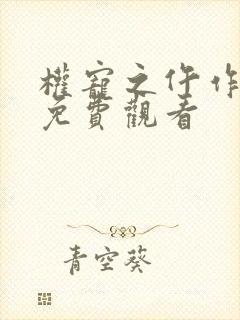 權寵之仵作
免費觀看
青空葵